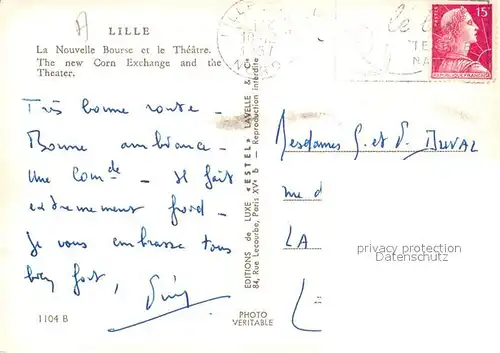 A
LILLE
La Nouvelle Bourse et le Théâtre.
The new Corn Exchange and the
Theater.
Très bonne route -
Bonne ambiance -
Une Comde - Il fait
extrêmement froid -
Je vous embrasse tous
bien fort,
1104 B
PHOTO
VERITABLE
EDITIONS de LUXE «ESTEL» LAVELLE & Cie
84, Rue Lecourbe, Paris XVe b — Reproduction interdite
LILLE
1957
15F
Mesdames G. et P. DUVAL
LA
privacy protection
Datenschutz